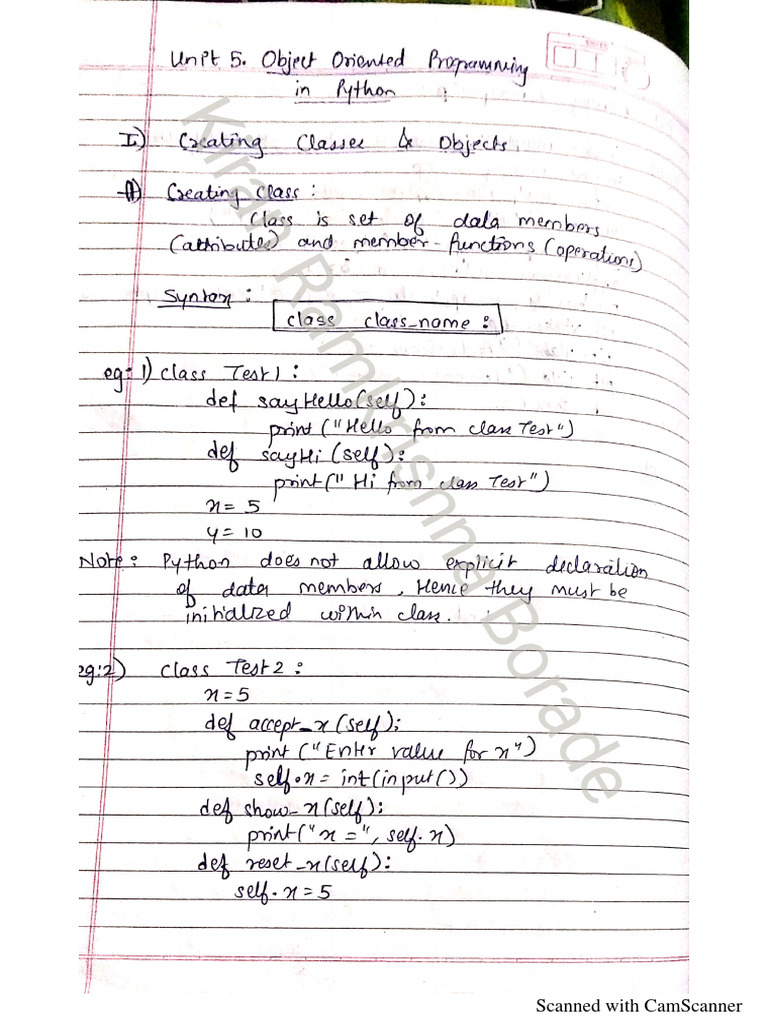 Unit 5. Object Oriented Programming
in Python
I) Creating Classes & Objects.
A) Creating Class :
Class is set of data members
(attributes) and member-functions (operations)
Syntax :
class class_name :
eg: 1) class Test1 :
def sayHello(self):
print ("Hello from class Test")
def sayHi (self):
print("Hi from class Test")
x = 5
y = 10
Note : Python does not allow explicit declaration
of data members, Hence they must be
initialized within class.
eg:2) class Test2 :
x = 5
def accept_x (self);
print ("Enter value for x")
self.x = int(input())
def show_x(self):
print("x =", self.x)
def reset_x(self):
self.x = 5
Kiran Ramkrishna Borade
Scanned with CamScanner